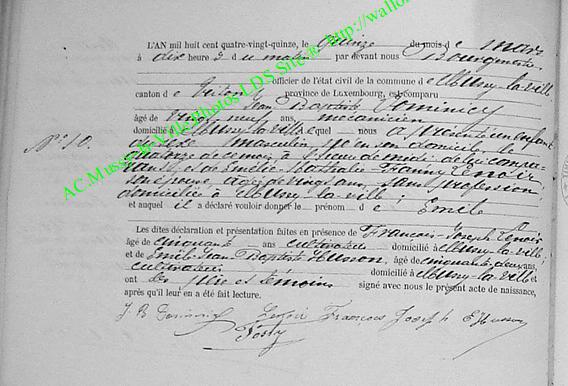 L'AN mil huit cent quatre-vingt-quinze, le quinze du mois de mars
à dix heures du matin par devant nous Bourgmestre
officier de l'état civil de la commune de Mussy-la-ville
canton de Virton province de Luxembourg, est comparu
Jean Baptiste Dominicy
âgé de vingt neuf ans, mécanicien
domicilié à Mussy-la-ville lequel nous a présenté un enfant
N° 10. du sexe masculin, né en son domicile, le
quatorze de ce mois à heure de midi de lui compa-
rant et de Emélie Fanny Lenoir
son épouse, âgée de vingt ans, sans profession
domiciliée à Mussy-la-ville ;
et auquel il a déclaré vouloir donner le prénom de Emile
Les dites déclaration et présentation faites en présence de François-Joseph Lenoir
âgé de cinquante ans cultivateur domicilié à Mussy-la-ville
et de Emile Jean Baptiste Husson, âgé de cinquante deux ans,
cultivateur domicilié à Mussy-la-ville et
ont les père et témoins signé avec nous le présent acte de naissance,
après qu'il leur en a été fait lecture.
J. B. Dominicy Lenoir François Joseph E. Husson
AC.Mussy-la-Ville Photos LDS Site @ http://wallo